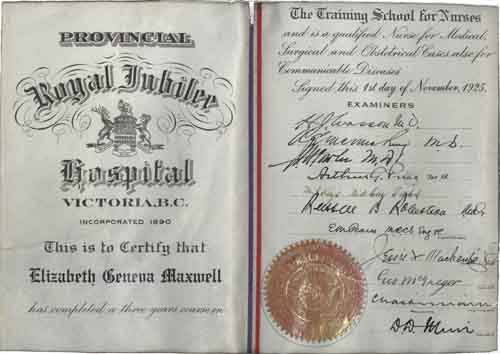 PROVINCIAL
Royal Jubilee
Hospital
VICTORIA, B.C.
INCORPORATED 1890
This is to Certify that
Elizabeth Geneva Maxwell
has completed a three years course in
The Training School for Nurses
and is a qualified Nurse for Medical,
Surgical and Obstetrical Cases also for
Communicable Diseases
Signed this 1st day of November, 1925.
EXAMINERS
M.D.
M.D.
Arthur G. Price M.D.
B. Robertson
Jessie Mackenzie
Geo. McGregor
D.D. Muir